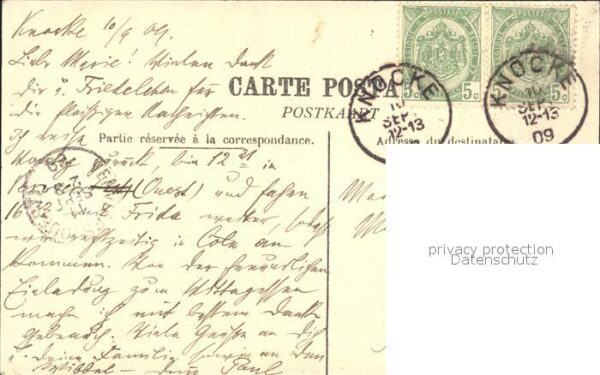 Knocke 10/9 09.
Liebe Marie! Vielen Dank
dir u. Friedelchen für
die fleissigen Nachrichten.
Ich reise
zurück, bin 12 21 in
(Ouest) und fahre
16 22 mit Frida weiter, sodass
wir rechtzeitig in Cöln an-
kommen. Von der freundlichen
Einladung zum Mittagessen
mache ich mit bestem Dank
Gebrauch. Viele Grüsse an dich
u. deine Familie sowie an den
dein Paul
CARTE POSTA
POSTKAART
Partie réservée à la correspondance.
Adresse du destinatai
5c 5c
5c
KNOCKE
10
SEPT
12-13
KNOCKE
10
SEPT
12-13
09
Ma
M
privacy protection
Datenschutz